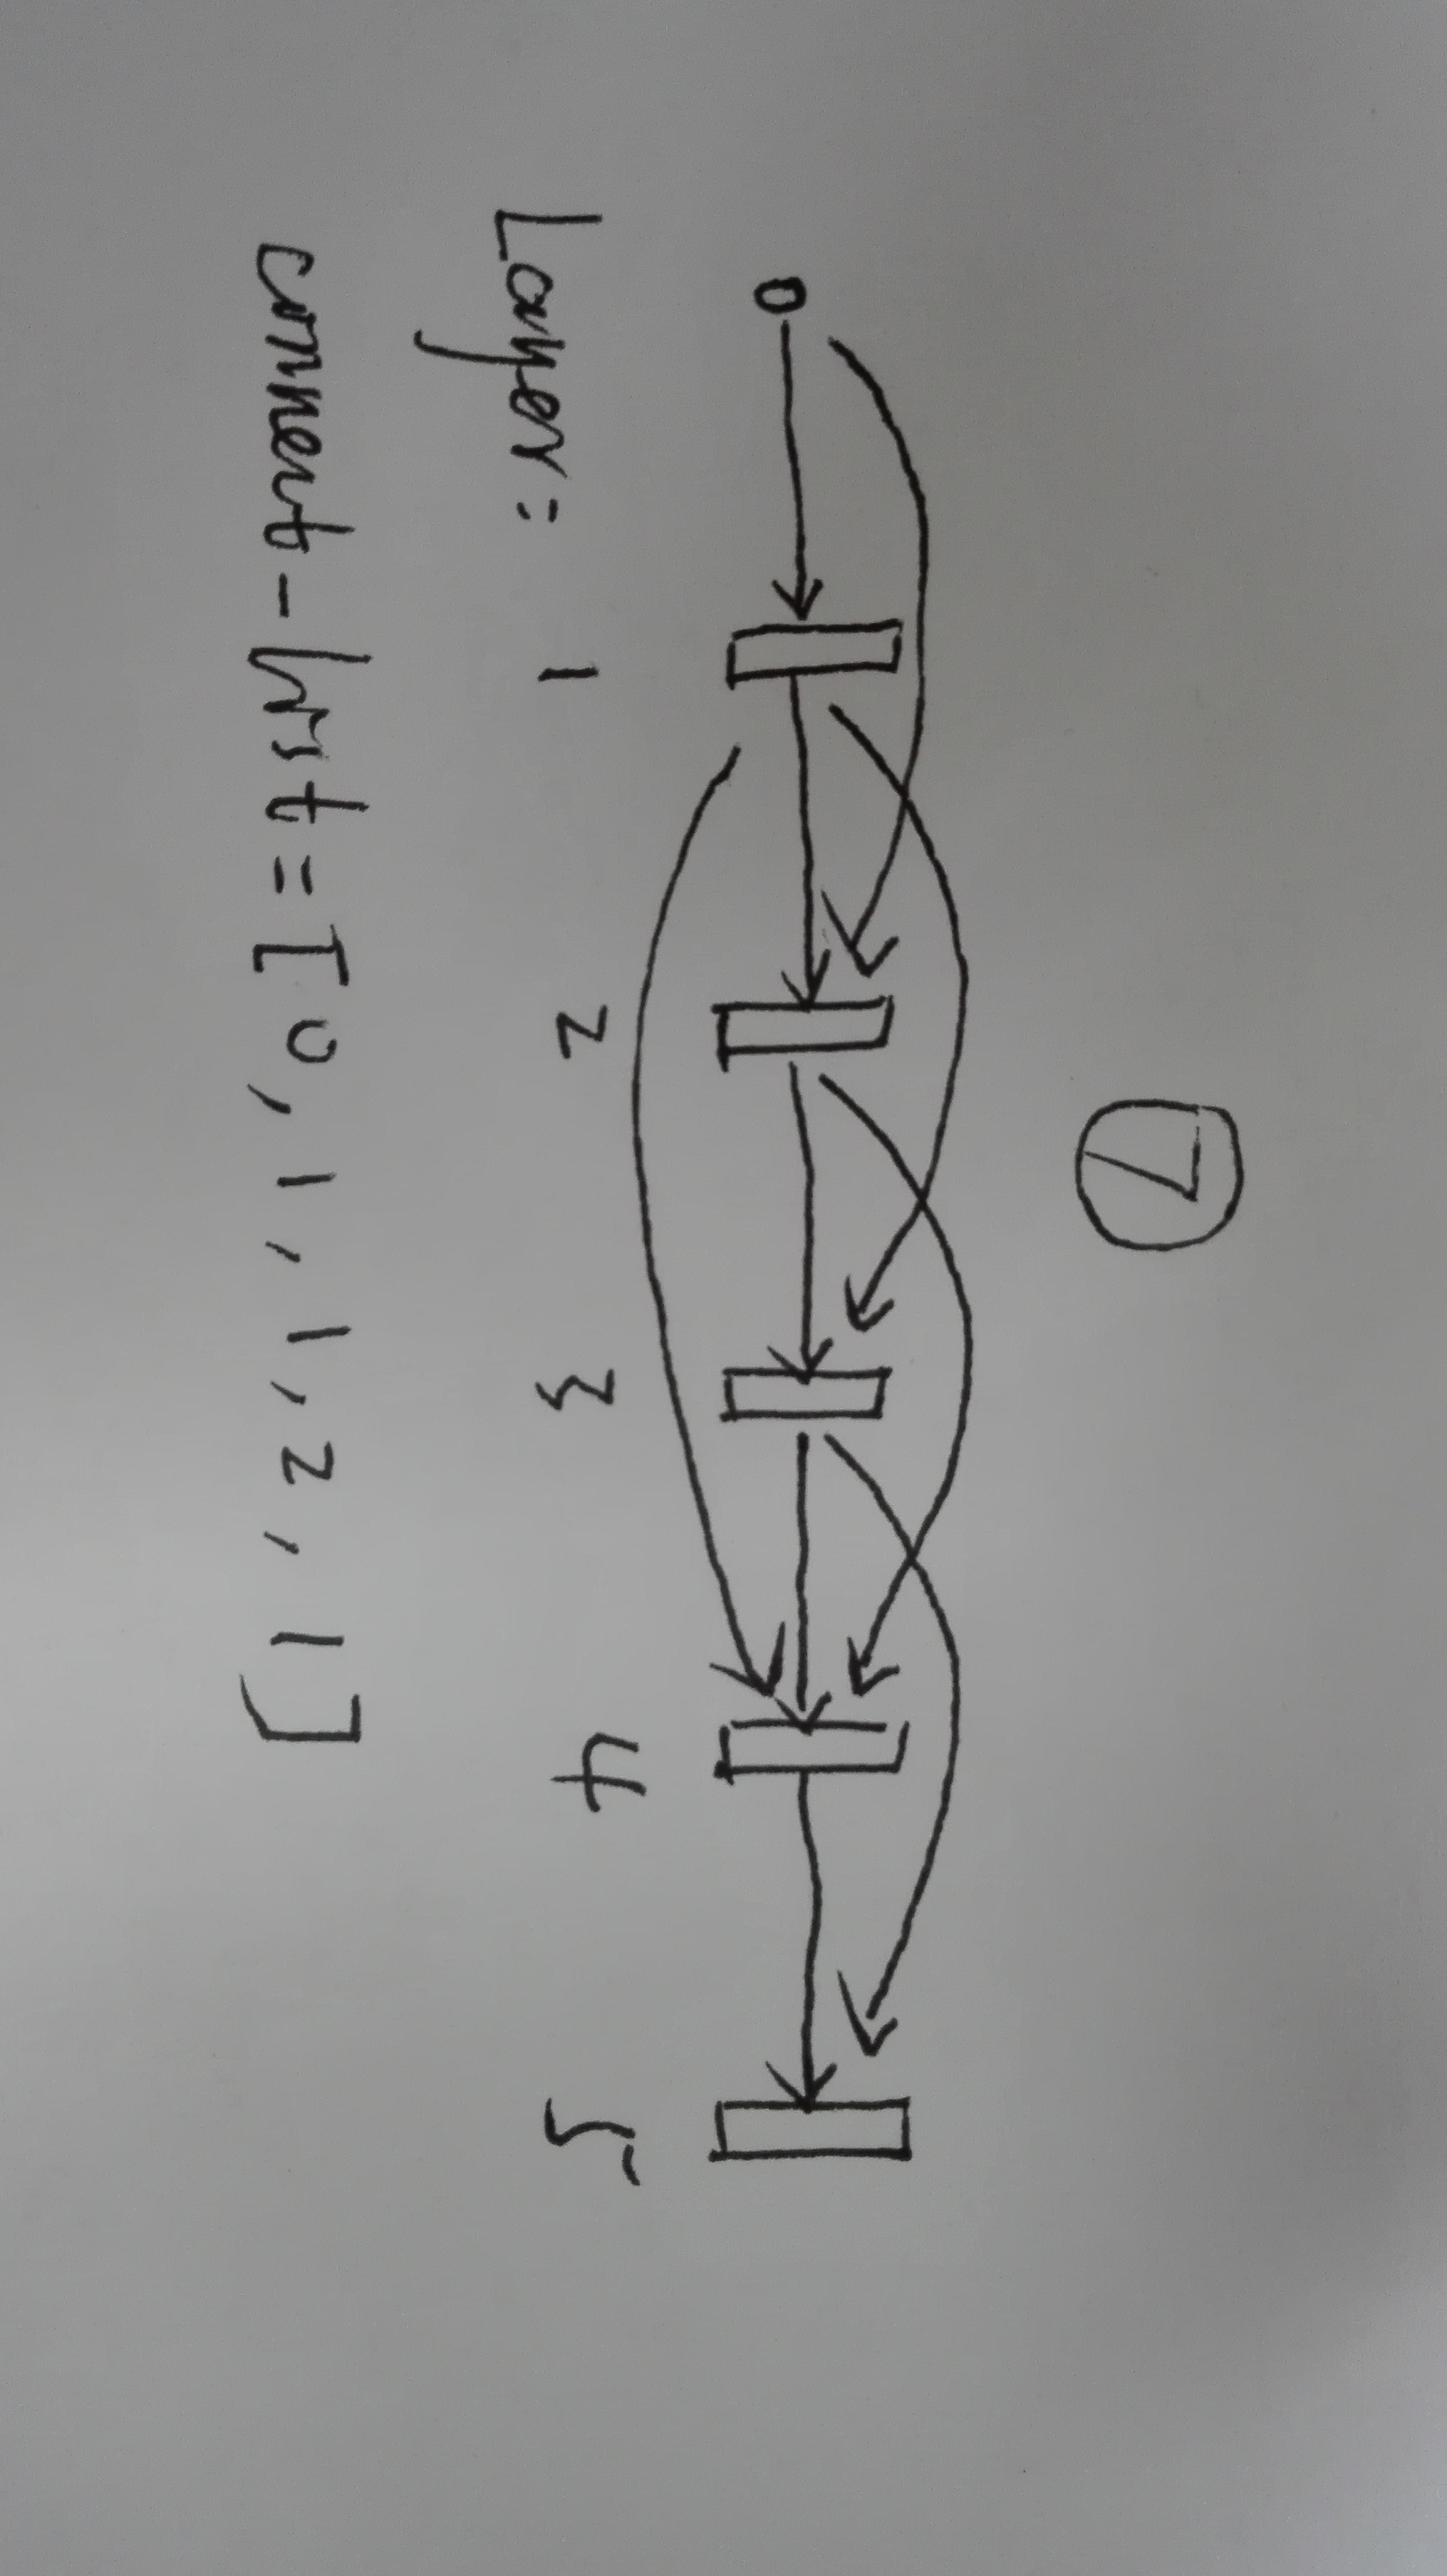 7
0
Layer: 1 2 3 4 5
connect-list = [0, 1, 1, 2, 1]